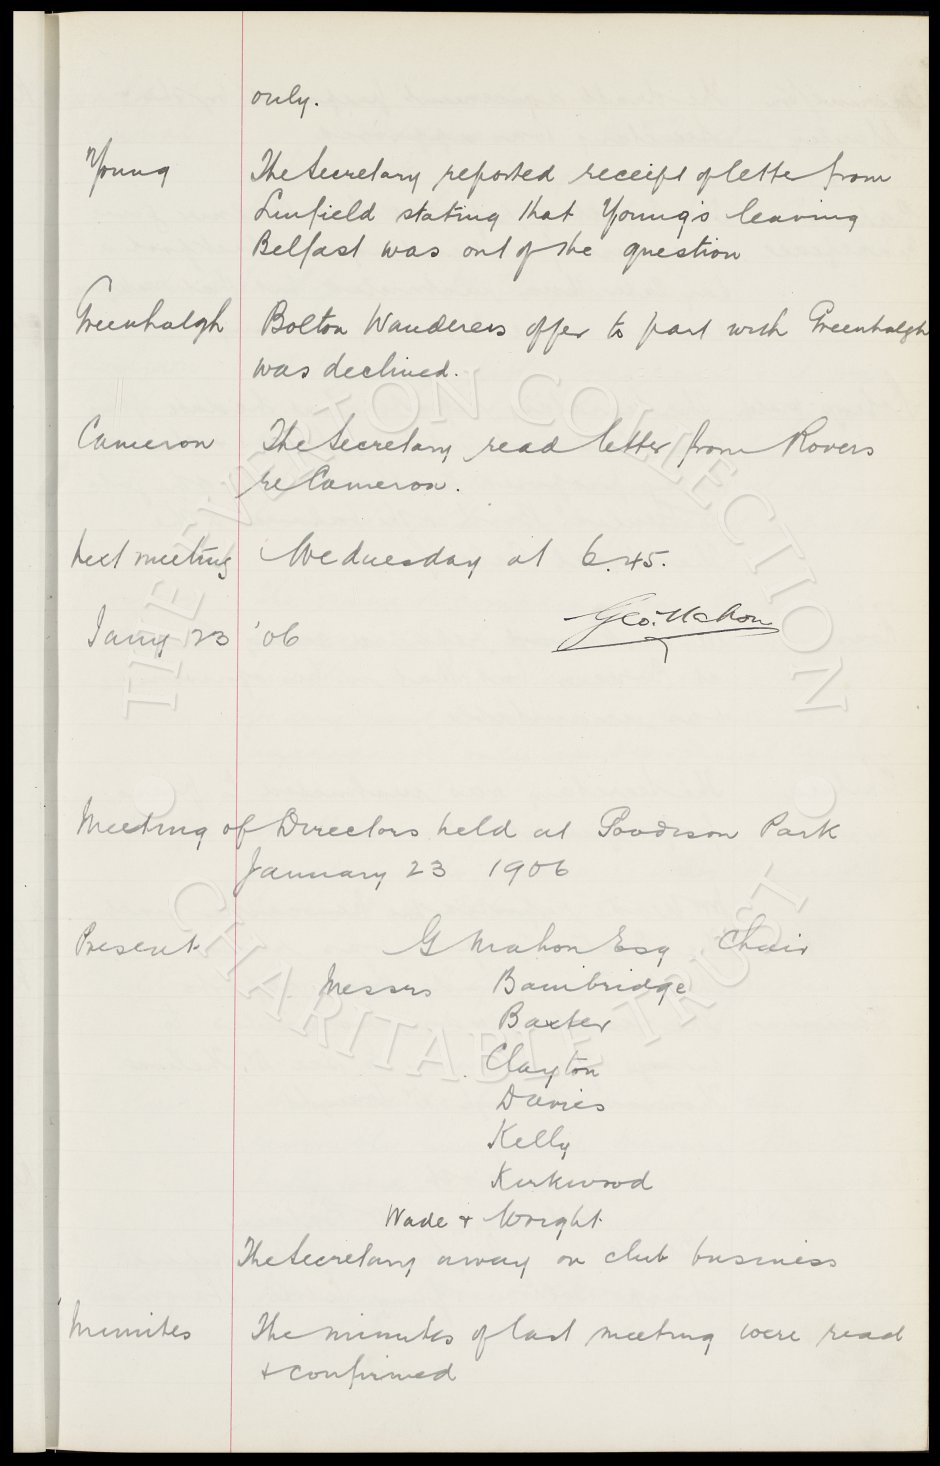 only.
Young The Secretary reported receipt of letter from
Linfield stating that Young's leaving
Belfast was out of the question
Greenhalgh Bolton Wanderers offer to part with Greenhalgh
was declined.
Cameron The Secretary read letter from Rovers
re Cameron.
Next meeting Wednesday at 6.45.
Jany 23 '06 Geo. Mahon
Meeting of Directors held at Goodison Park
January 23 1906
Present G Mahon Esq Chair
Messrs Bainbridge
Baxter
Clayton
Davies
Kelly
Kirkwood
Wade + Wright
The Secretary away on club business
Minutes The minutes of last meeting were read
+ confirmed
THE EVERTON COLLECTION
CHARITABLE TRUST